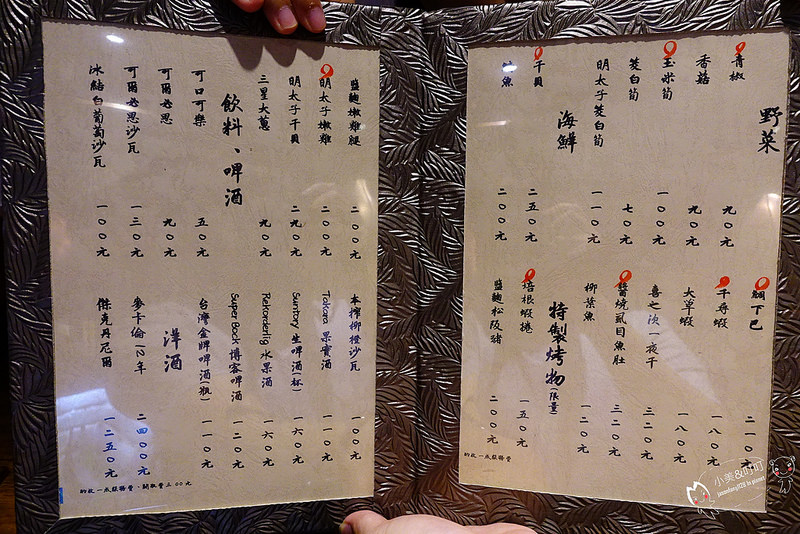 野菜
青椒 九〇元
香菇 九〇元
玉米筍 一〇〇元
茭白筍 七〇元
明太子茭白筍 一一〇元
海鮮
干貝 二五〇元
魚 二〇〇元
鯛下巴 二一〇元
蝦 一八〇元
大草蝦 一八〇元
喜之次一夜干 三二〇元
醬燒虱目魚肚 三二〇元
柳葉魚 一二〇元
特製烤物(限量)
培根蝦捲 一五〇元
鹽麴松阪豬 二〇〇元
酌收一成服務費
鹽麴嫩雞腿 二〇〇元
明太子嫩雞 二〇〇元
明太子干貝 二九〇元
三星大蔥 九〇元
飲料、啤酒
可口可樂 五〇元
可爾必思 九〇元
可爾必思沙瓦 一三〇元
冰結白葡萄沙瓦 一〇〇元
本榨柳橙沙瓦 一〇〇元
Takara 果實酒 一〇〇元
Suntory 生啤酒(杯) 一六〇元
Rekorderlig 水果酒 一六〇元
Super Bock 博客啤酒 一二〇元
台灣金牌啤酒(瓶) 一一〇元
洋酒
麥卡倫12年 二四〇〇元
傑克丹尼爾 一二五〇元
酌收一成服務費、開瓶費三〇〇元
小美&叮叮